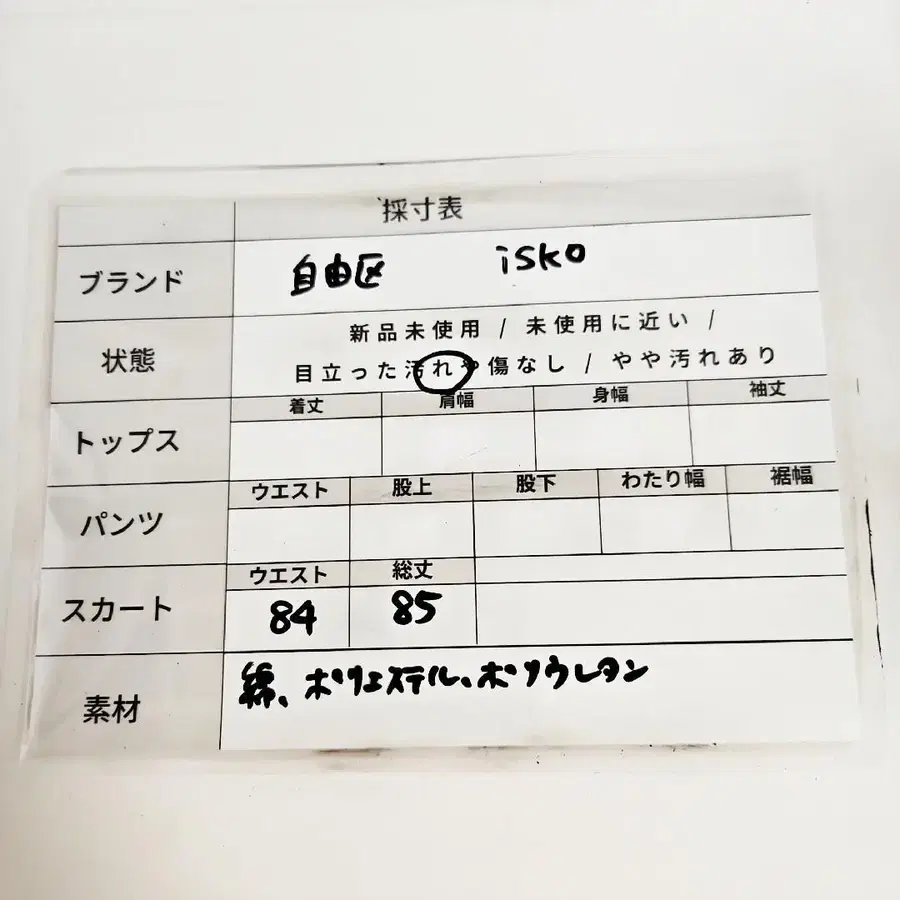 採寸表
ブランド 自由区 isko
状態 新品未使用 / 未使用に近い /
目立った汚れや傷なし / やや汚れあり
着丈 肩幅 身幅 袖丈
トップス
ウエスト 股上 股下 わたり幅 裾幅
パンツ
ウエスト 総丈
スカート 84 85
素材 綿、ポリエステル、ポリウレタン